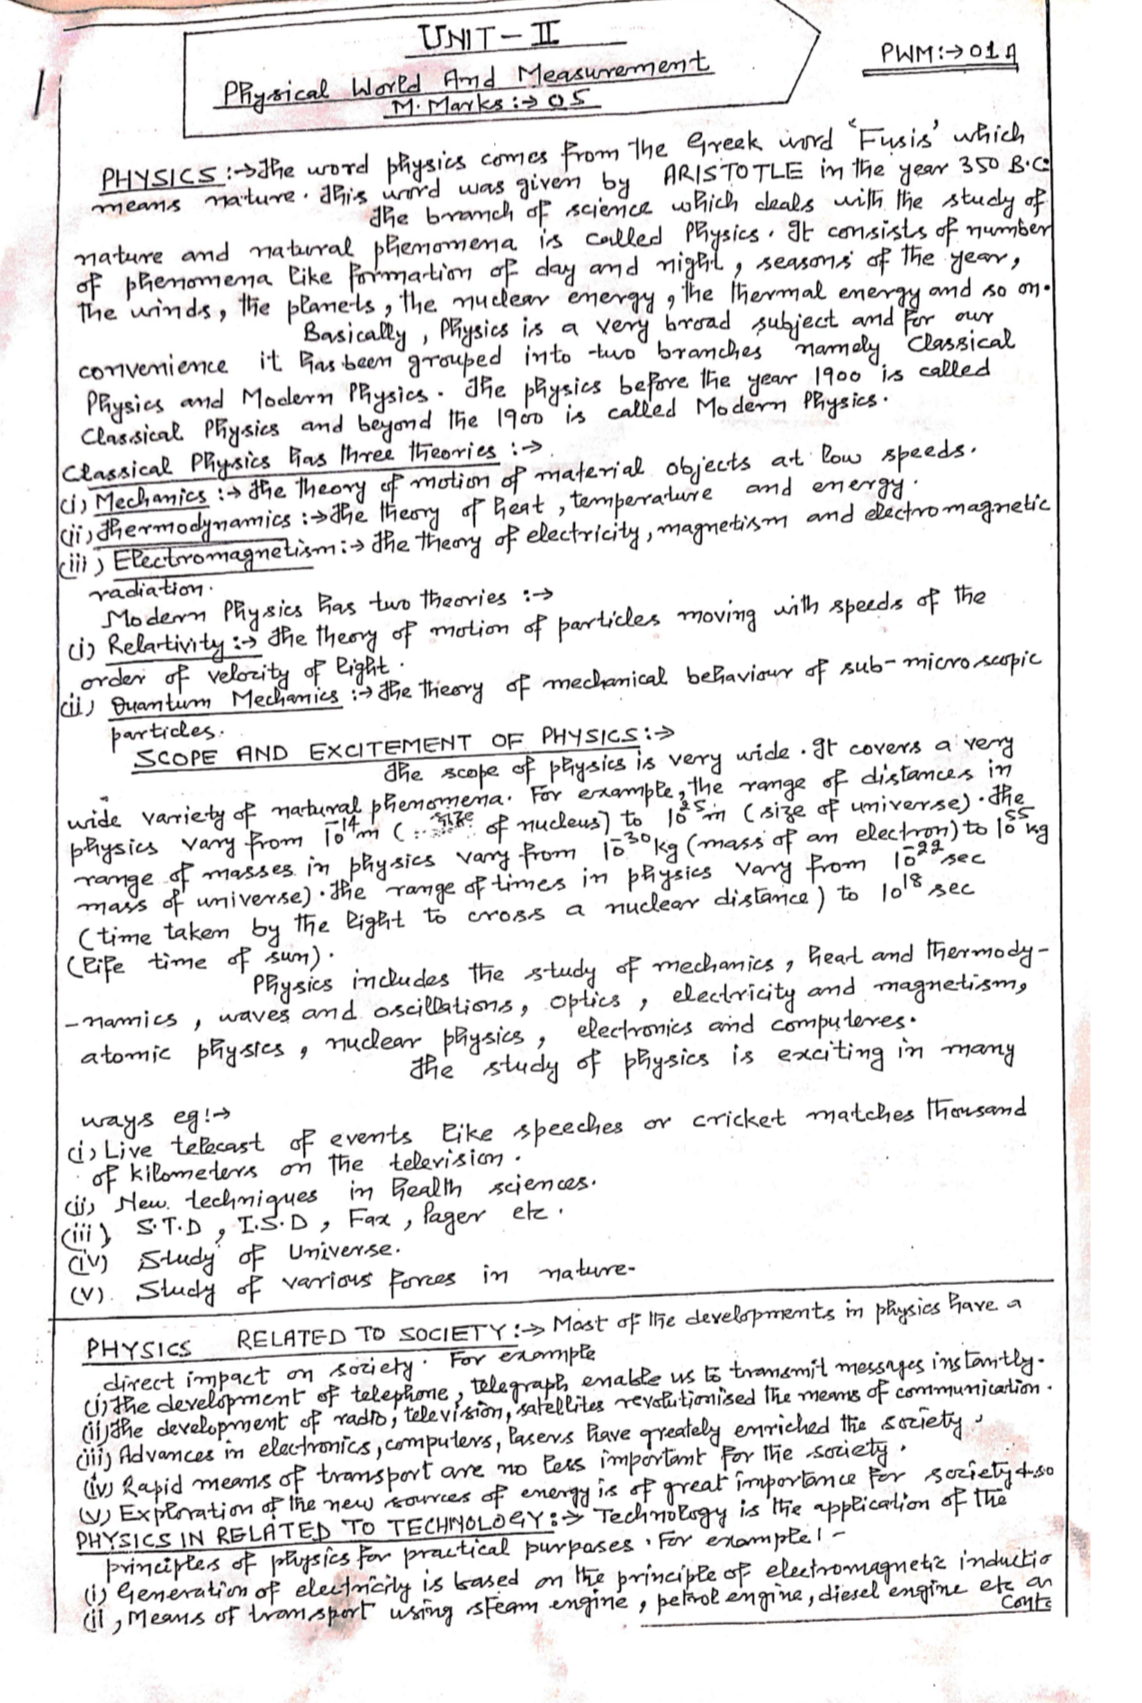 1
UNIT-II
PWM:→01A
Physical World And Measurement
M. Marks:→ 05
PHYSICS:→The word physics comes from the Greek word 'Fusis' which
means nature. This word was given by ARISTOTLE in the year 350 B.C.
The branch of science which deals with the study of
nature and natural phenomena is called Physics. It consists of number
of phenomena like formation of day and night, seasons of the year,
the winds, the planets, the nuclear energy, the thermal energy and so on.
Basically, Physics is a very broad subject and for our
convenience it has been grouped into two branches namely Classical
Physics and Modern Physics. The physics before the year 1900 is called
Classical Physics and beyond the 1900 is called Modern Physics.
Classical Physics has three theories:→
(i) Mechanics:→ The theory of motion of material objects at low speeds.
(ii) Thermodynamics:→The theory of heat, temperature and energy.
(iii) Electromagnetism:→ The theory of electricity, magnetism and electromagnetic
radiation.
Modern Physics has two theories:→
(i) Relartivity:→ The theory of motion of particles moving with speeds of the
order of velocity of light.
(ii) Quantum Mechanics:→ The theory of mechanical behaviour of sub-microscopic
particles.
SCOPE AND EXCITEMENT OF PHYSICS:→
The scope of physics is very wide. It covers a very
wide variety of natural phenomena. For example, the range of distances in
physics vary from 10⁻¹⁴m (size of nucleus) to 10²⁵m (size of universe). The
range of masses in physics vary from 10⁻³⁰kg (mass of an electron) to 10⁵⁵kg
mass of universe). The range of times in physics vary from 10⁻²²sec
(time taken by the light to cross a nuclear distance) to 10¹⁸ sec
(life time of sun).
Physics includes the study of mechanics, heat and thermody-
-namics, waves and oscillations, optics, electricity and magnetism,
atomic physics, nuclear physics, electronics and computeres.
The study of physics is exciting in many
ways eg:→
(i) Live telecast of events like speeches or cricket matches thousand
of kilometers on the television.
(ii) New techniques in health sciences.
(iii) S.T.D, I.S.D, Fax, Pager etc.
(iv) Study of Universe.
(v). Study of various forces in nature-
PHYSICS RELATED TO SOCIETY:→ Most of the developments in physics have a
direct impact on society. For example
(i) The development of telephone, telegraph enable us to transmit messages instantly.
(ii) The development of radio, television, satellites revolutionised the means of communication.
(iii) Advances in electronics, computers, lasers have greately enriched the society.
(iv) Rapid means of transport are no less important for the society.
(v) Exploration of the new sources of energy is of great importance for society & so
PHYSICS IN RELATED TO TECHNOLOGY:→ Technology is the application of the
principles of physics for practical purposes. For example!-
(i) Generation of electricity is based on the principle of electromagnetic inductio
(ii, Means of transport using steam engine, petrol engine, diesel engine etc an
Cont